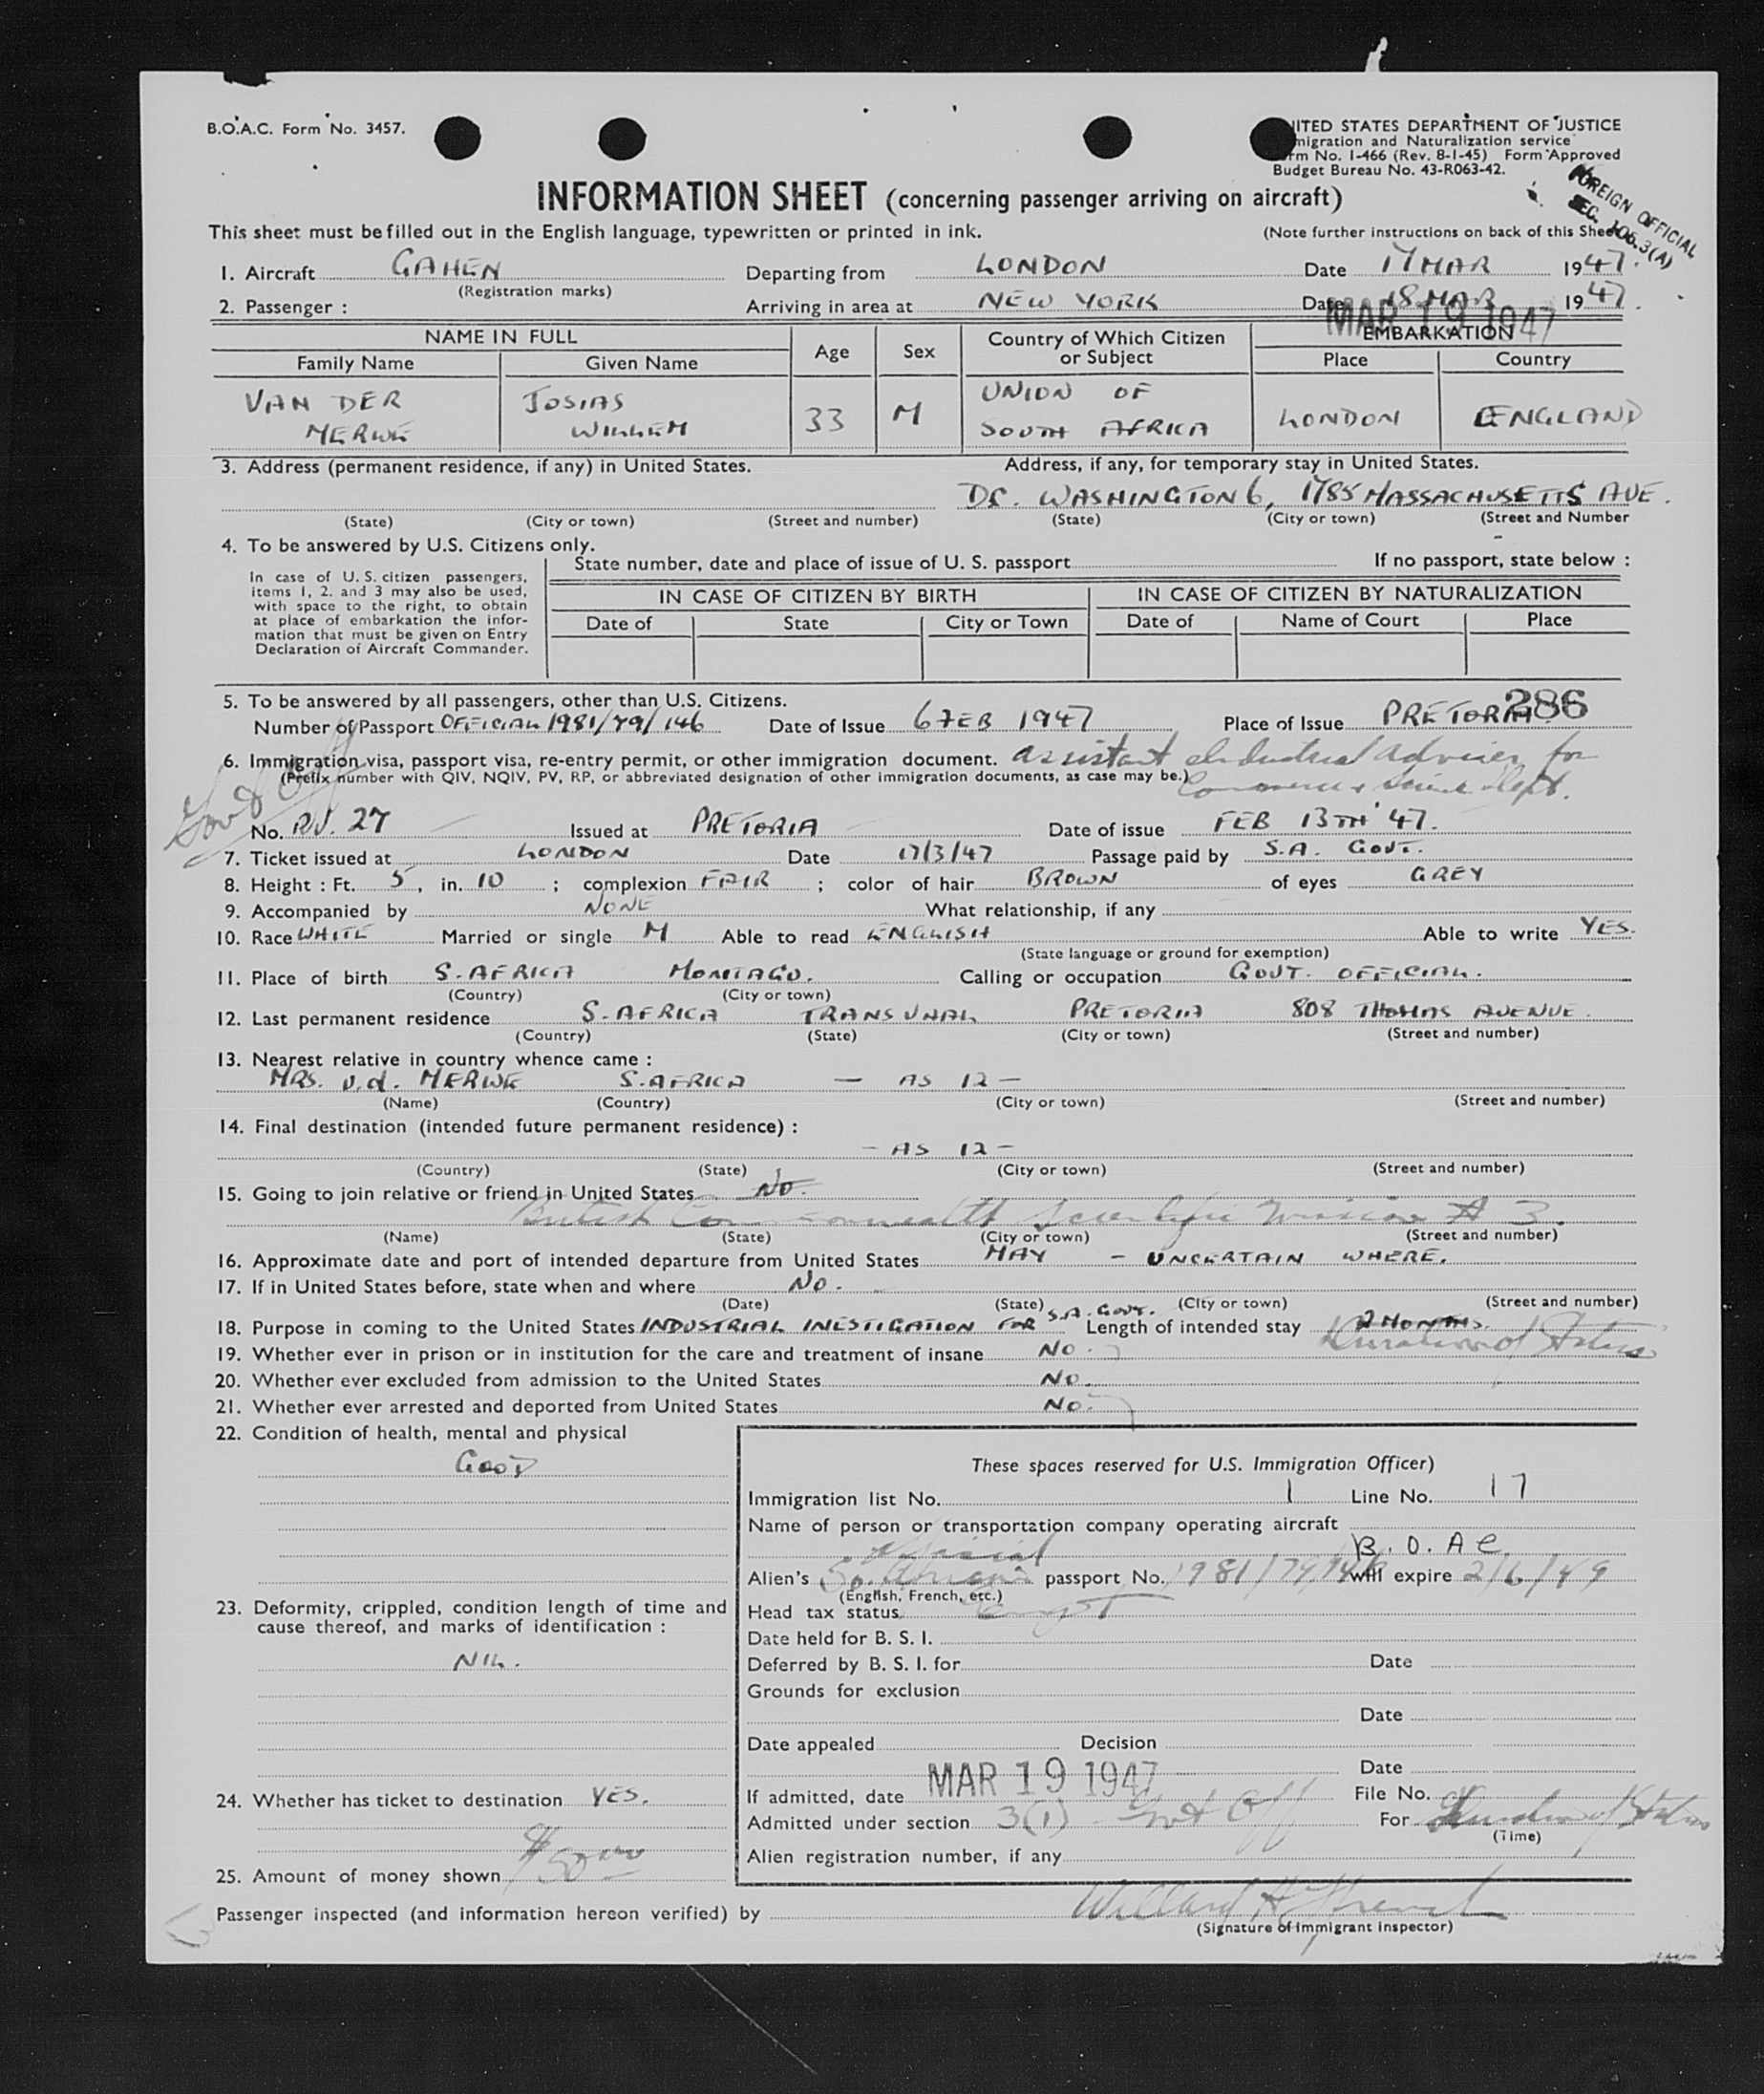 B.O.A.C. Form No. 3457.
UNITED STATES DEPARTMENT OF JUSTICE
Immigration and Naturalization service
Form No. I-466 (Rev. 8-1-45) Form Approved
Budget Bureau No. 43-R063-42.
FOREIGN OFFICIAL
SEC. 106.3(A)
INFORMATION SHEET (concerning passenger arriving on aircraft)
This sheet must be filled out in the English language, typewritten or printed in ink.
(Note further instructions on back of this Sheet)
1. Aircraft GAHEN Departing from LONDON Date 17 MAR 1947.
(Registration marks)
2. Passenger : Arriving in area at NEW YORK Date 18 MAR 1947.
MAR 19 1947
NAME IN FULL Age Sex Country of Which Citizen or Subject EMBARKATION
Family Name Given Name Place Country
VAN DER MERWE JOSIAS WILLEM 33 M UNION OF SOUTH AFRICA LONDON ENGLAND
3. Address (permanent residence, if any) in United States. Address, if any, for temporary stay in United States.
DC. WASHINGTON 6, 1785 MASSACHUSETTS AVE.
(State) (City or town) (Street and number) (State) (City or town) (Street and Number
4. To be answered by U.S. Citizens only.
State number, date and place of issue of U. S. passport If no passport, state below :
In case of U. S. citizen passengers, items 1, 2. and 3 may also be used, with space to the right, to obtain at place of embarkation the information that must be given on Entry Declaration of Aircraft Commander.
IN CASE OF CITIZEN BY BIRTH IN CASE OF CITIZEN BY NATURALIZATION
Date of State City or Town Date of Name of Court Place
5. To be answered by all passengers, other than U.S. Citizens.
286
Number of Passport OFFICIAL 1981/79/146 Date of Issue 6 FEB 1947 Place of Issue PRETORIA.
6. Immigration visa, passport visa, re-entry permit, or other immigration document. assistant Industrial Adviser for
(Prefix number with QIV, NQIV, PV, RP, or abbreviated designation of other immigration documents, as case may be.) Commerce & Science Dept.
Govt Off
No. RV. 27 Issued at PRETORIA Date of issue FEB 13TH '47.
7. Ticket issued at LONDON Date 17/3/47 Passage paid by S.A. GOVT.
8. Height : Ft. 5, in. 10 ; complexion FAIR ; color of hair BROWN of eyes GREY
9. Accompanied by NONE What relationship, if any
10. Race WHITE Married or single M Able to read ENGLISH Able to write YES.
(State language or ground for exemption)
11. Place of birth S. AFRICA MONTAGU. Calling or occupation GOVT. OFFICIAL.
(Country) (City or town)
12. Last permanent residence S. AFRICA TRANSVAAL PRETORIA 808 THOMAS AVENUE.
(Country) (State) (City or town) (Street and number)
13. Nearest relative in country whence came :
MRS. v.d. MERWE S. AFRICA — AS 12 —
(Name) (Country) (City or town) (Street and number)
14. Final destination (intended future permanent residence) :
— AS 12 —
(Country) (State) (City or town) (Street and number)
15. Going to join relative or friend in United States No.
British Commonwealth Scientific Mission # 3.
(Name) (State) (City or town) (Street and number)
16. Approximate date and port of intended departure from United States MAY — UNCERTAIN WHERE.
17. If in United States before, state when and where No.
(Date) (State) (City or town) (Street and number)
18. Purpose in coming to the United States INDUSTRIAL INESTIGATION FOR S.A. GOVT. Length of intended stay 2 MONTHS.
Duration of Status
19. Whether ever in prison or in institution for the care and treatment of insane No.
20. Whether ever excluded from admission to the United States No.
21. Whether ever arrested and deported from United States No.
22. Condition of health, mental and physical
GOOD
These spaces reserved for U.S. Immigration Officer)
Immigration list No. 1 Line No. 17
Name of person or transportation company operating aircraft
B.O.AC
Official
Alien's So. African passport No. 1981/79/146 will expire 2/6/49
(English, French, etc.)
Head tax status
Date held for B. S. I.
Deferred by B. S. I. for Date
Grounds for exclusion
Date
Date appealed Decision
Date
If admitted, date MAR 19 1947 File No.
Admitted under section 3(1) Govt Off For Duration of Status
(Time)
Alien registration number, if any
23. Deformity, crippled, condition length of time and cause thereof, and marks of identification :
NIL.
24. Whether has ticket to destination YES.
25. Amount of money shown $50.00
Passenger inspected (and information hereon verified) by
(Signature of Immigrant Inspector)